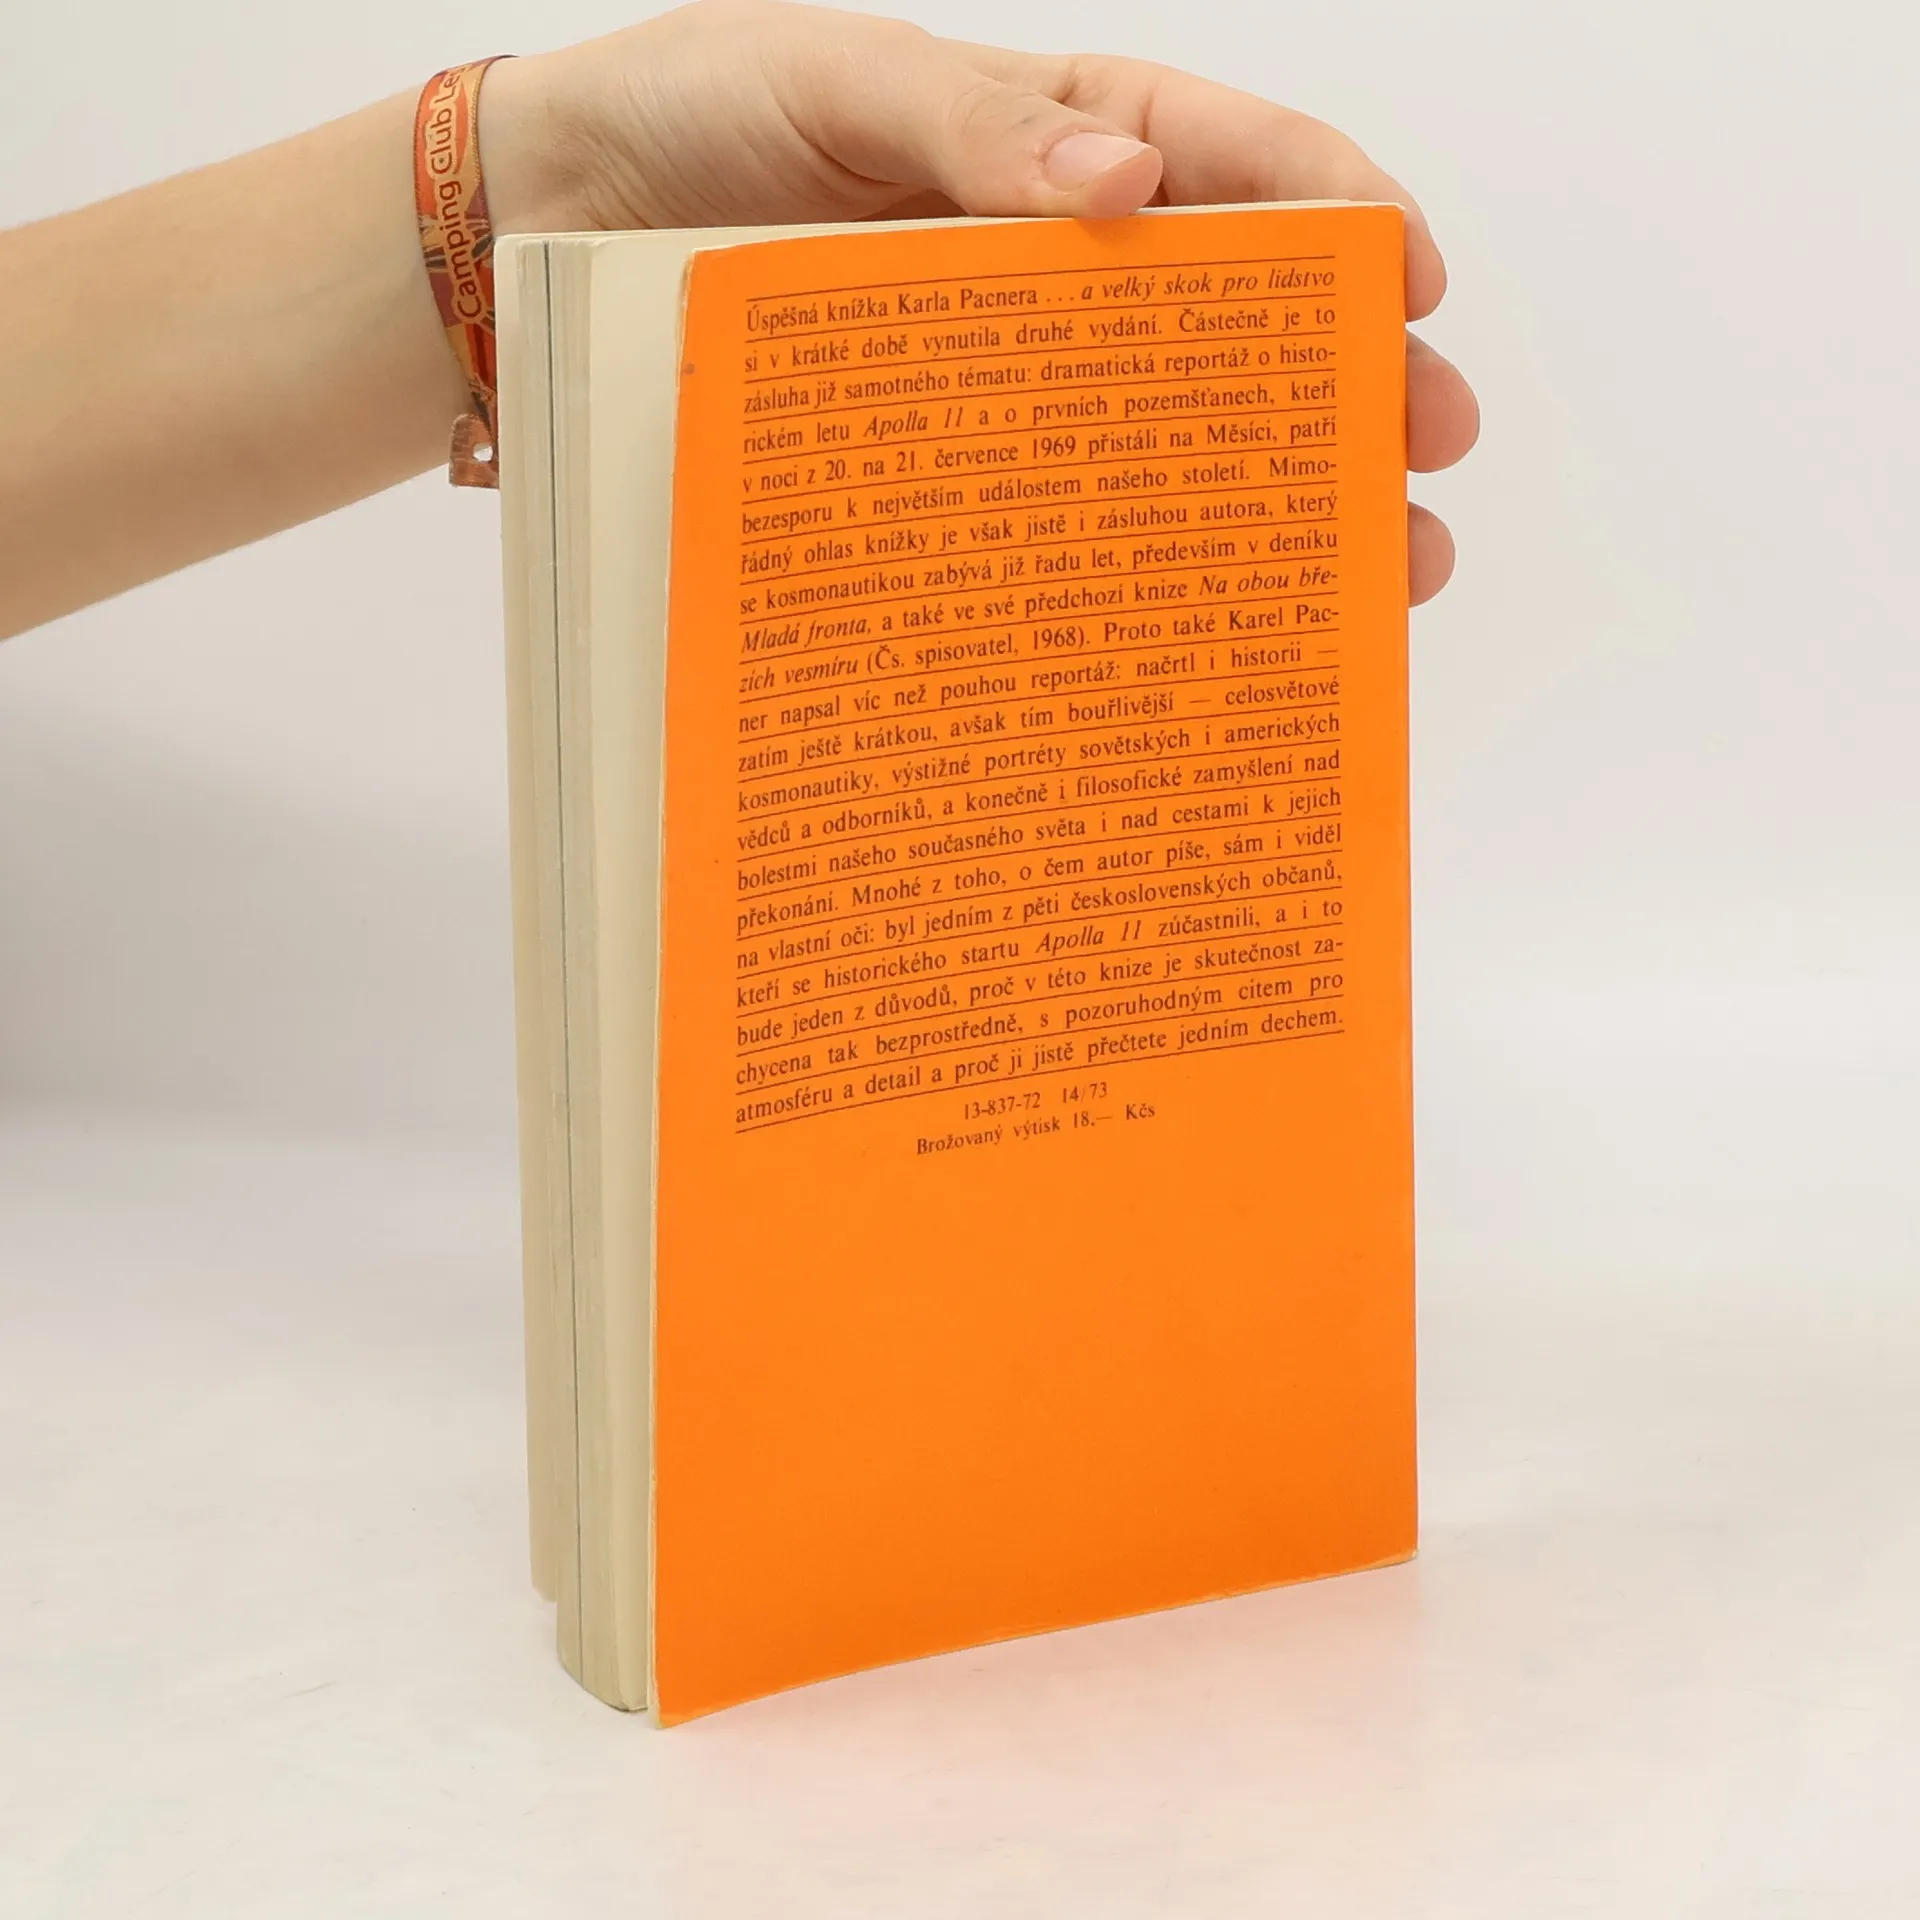 Camping Club Le
Úspěšná knížka Karla Pacnera ...a velký skok pro lidstvo
si v krátké době vynutila druhé vydání. Částečně je to
zásluha již samotného tématu: dramatická reportáž o histo-
rickém letu Apolla 11 a o prvních pozemšťanech, kteří
v noci z 20. na 21. července 1969 přistáli na Měsíci, patří
bezesporu k největším událostem našeho století. Mimo-
řádný ohlas knížky je však jistě i zásluhou autora, který
se kosmonautikou zabývá již řadu let, především v deníku
Mladá fronta, a také ve své předchozí knize Na obou bře-
zích vesmíru (Čs. spisovatel, 1968). Proto také Karel Pac-
ner napsal víc než pouhou reportáž: načrtl i historii —
zatím ještě krátkou, avšak tím bouřlivější — celosvětové
kosmonautiky, výstižné portréty sovětských i amerických
vědců a odborníků, a konečně i filosofické zamyšlení nad
bolestmi našeho současného světa i nad cestami k jejich
překonání. Mnohé z toho, o čem autor píše, sám i viděl
na vlastní oči: byl jedním z pěti československých občanů,
kteří se historického startu Apolla 11 zúčastnili, a i to
bude jeden z důvodů, proč v této knize je skutečnost za-
chycena tak bezprostředně, s pozoruhodným citem pro
atmosféru a detail a proč ji jistě přečtete jedním dechem.
13-837-72 14/73
Brožovaný výtisk 18.— Kčs